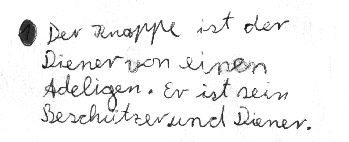 1 Der Knappe ist der
Diener von einen
Adeligen. Er ist sein
Beschützer und Diener.